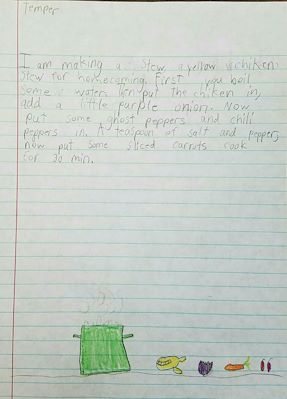 Temper
I am making a stew a yellow chiken
stew for homecoming. First you boil
some water, then put the chiken in,
add a little purple onion. Now
put some ghost peppers and chili
peppers in. A teaspoon of salt and pepper,
now put some sliced carrots cook
for 30 min.